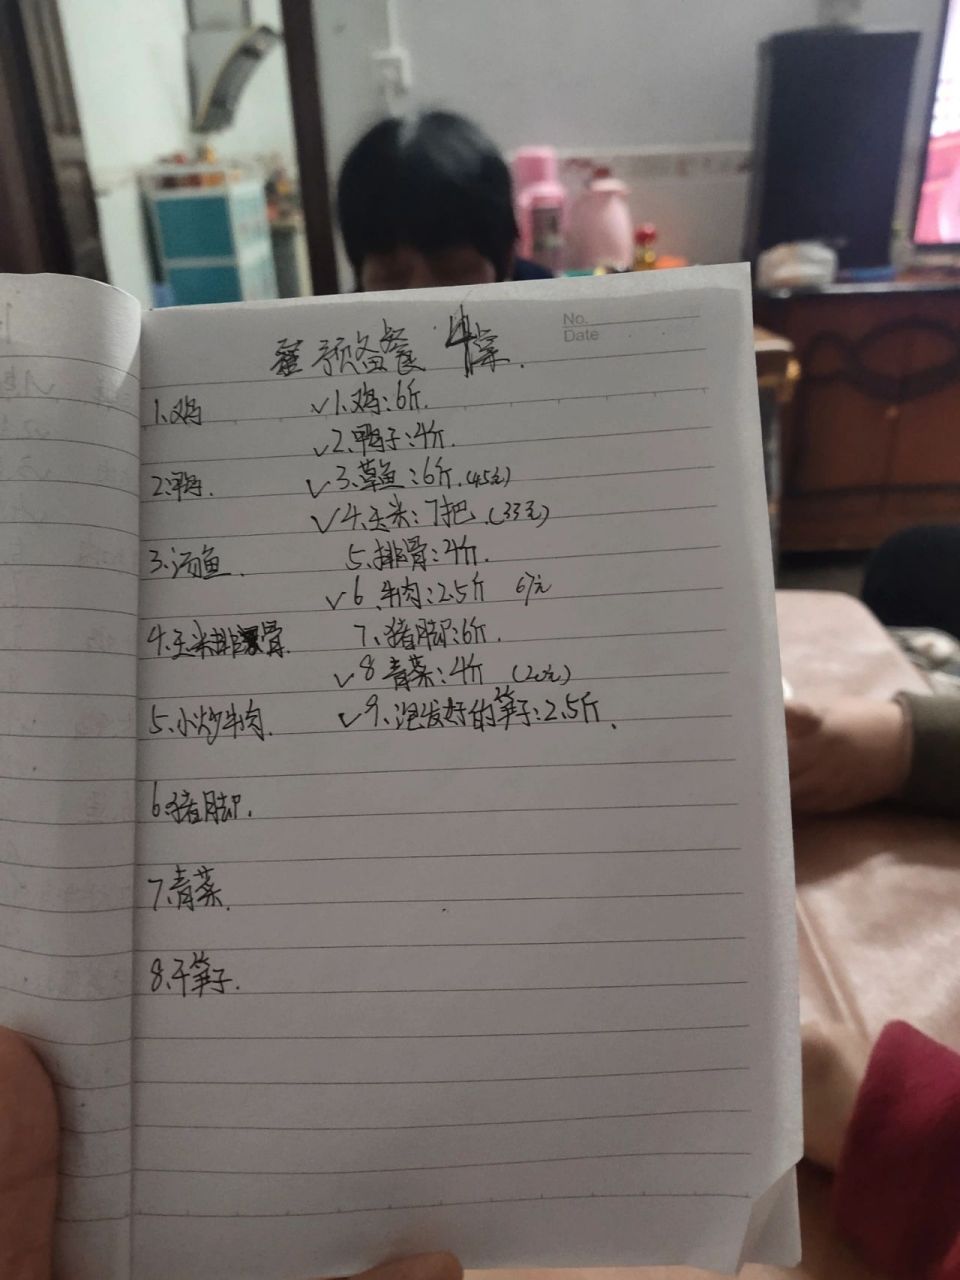 No.
Date
预备餐 4桌.
1、鸡
✓1、鸡:6斤.
✓2、鸭子:4斤.
2、鸭.
✓3、草鱼:6斤.(45元)
✓4、玉米:7把.(33元)
3、汤鱼.
5、排骨:4斤.
✓6、牛肉:2.5斤 67元
4、玉米排骨.
7、猪脚:6斤.
✓8青菜:4斤 (20元)
5、小炒牛肉.
✓9、泡发好的笋子:2.5斤.
6、猪脚.
7、青菜.
8、干笋子.